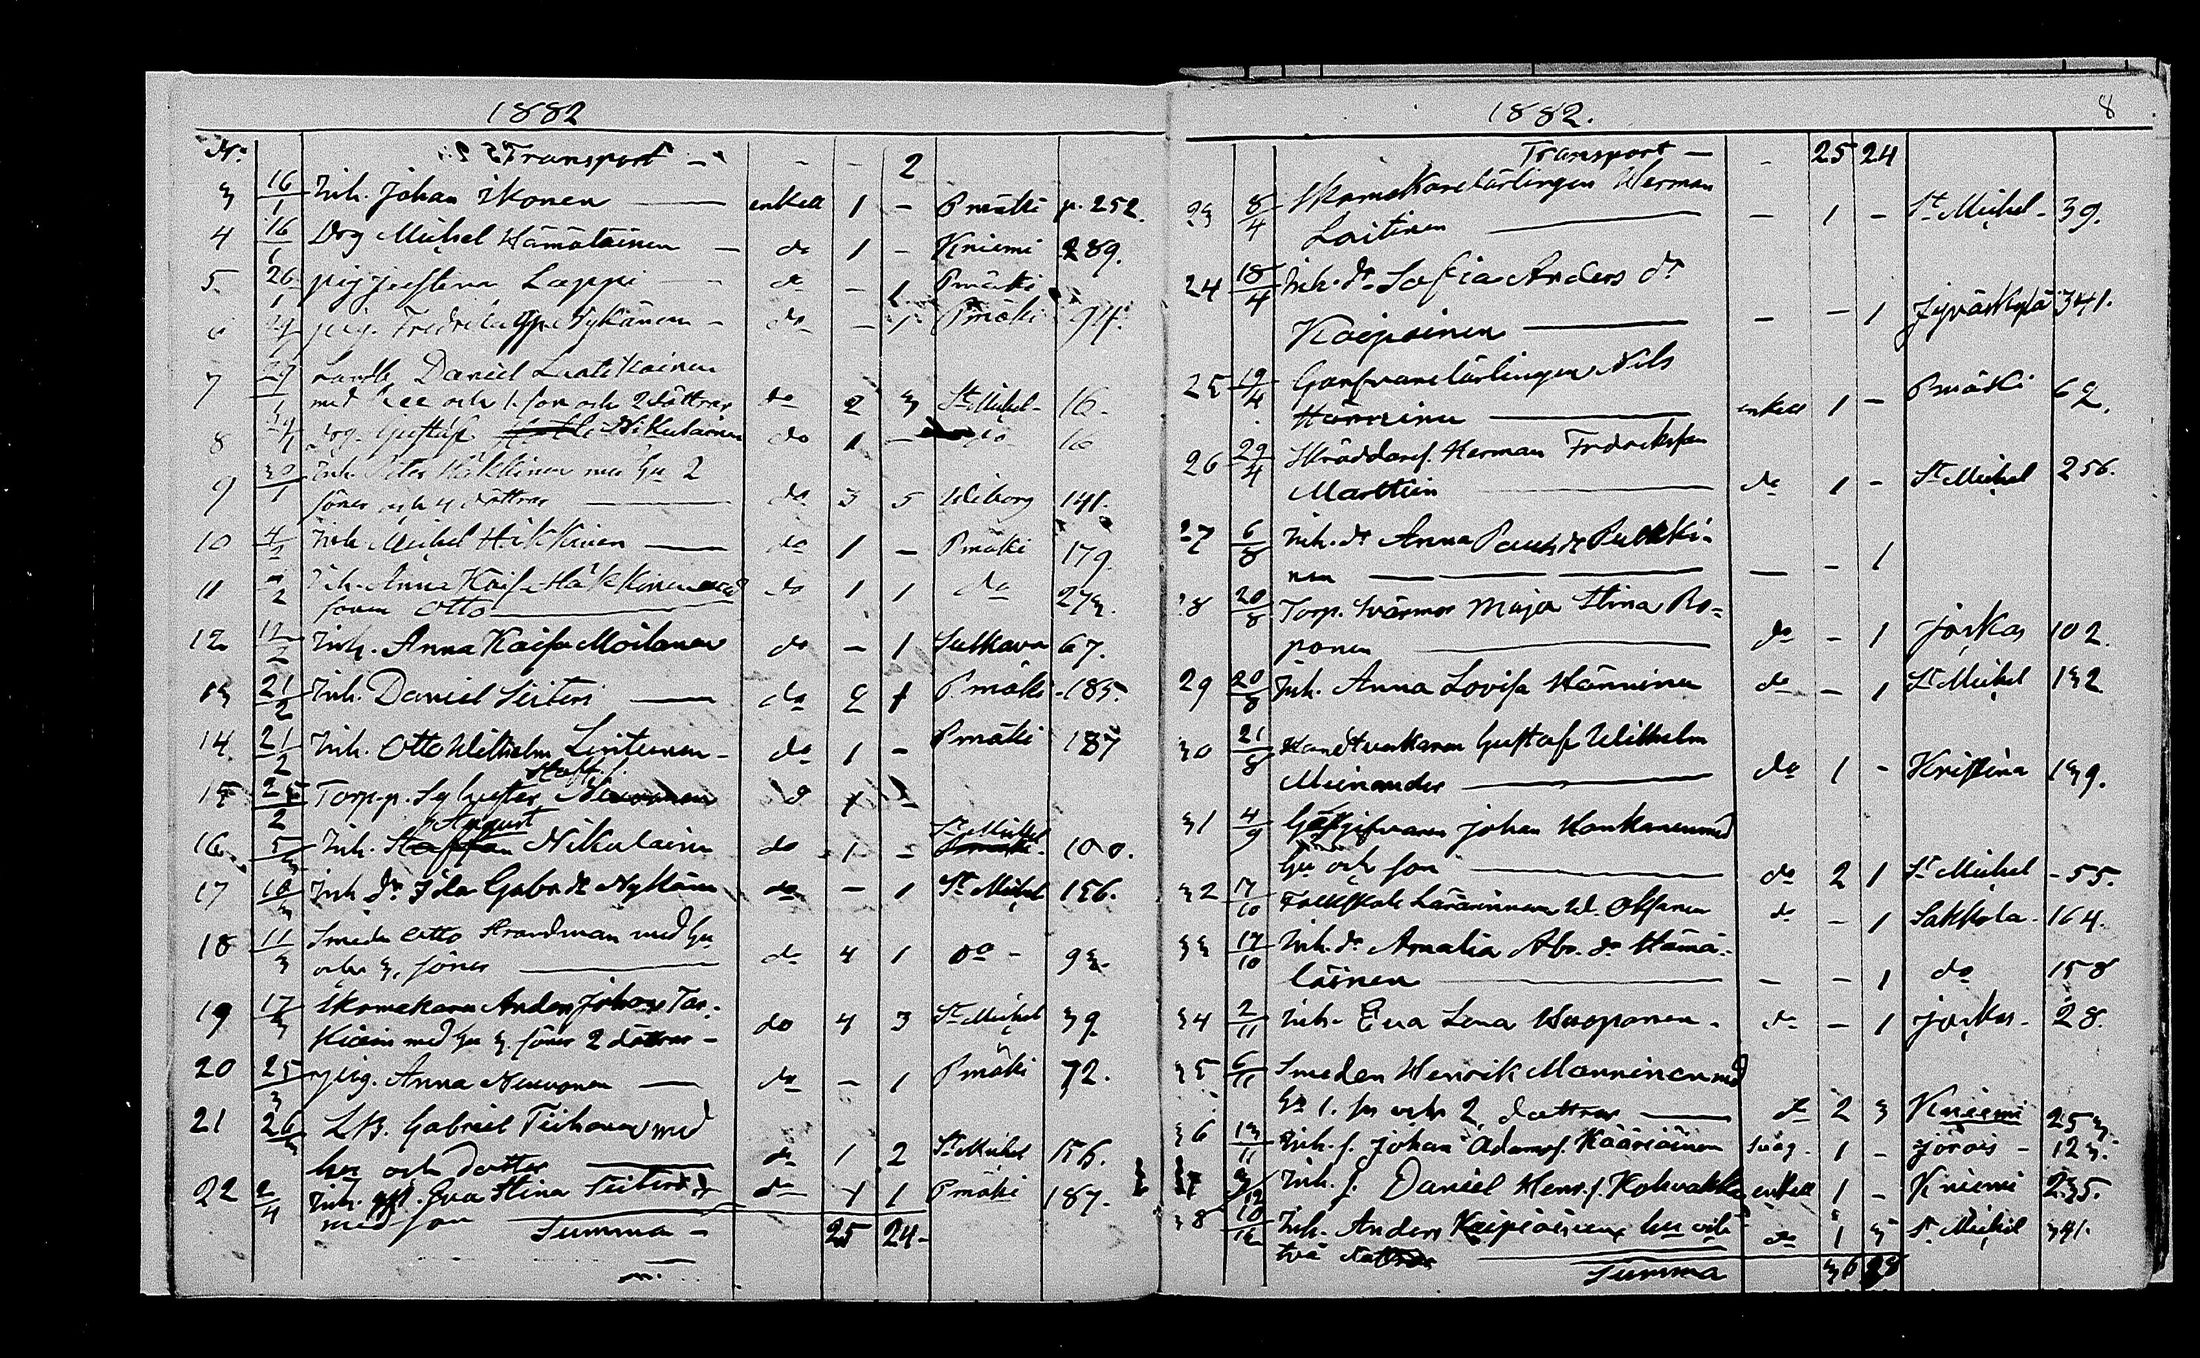 1882
No. Transport - - - 2
3 16/1 Inh. Johan Ikonen enkel 1 - Pmäki p. 252.
4 16/1 Drg Michel Hämäläinen - do 1 - Kniemi 289.
5. 26/1 pig Lappi do - 1 Pmäki
6 pig. Fredrika Nykänen - do - 1 Pmäki 94.
7 Landb. Daniel Luatikainen
med och 1. son och 2 döttrar do 2 3 St Michel - 16.
8 Drg. Gustaf Nikulainen do 1 - 10
9 30/1 Inh. Peter Häkkinen med hu 2
söner och 4 döttrar do 3 5 Wiborg 141.
10 4/2 Inh Michel Häkkinen do 1 - Pmäki 179.
11 Inh. Anna Kaisa Häkkinen med do 1 1 do 273.
sonen Otto
12 12/2 Inh. Anna Kaisa Moilanen do - 1 Sulkava 67.
13 21/2 Inh. Daniel Teitti do 2 1 Pmäki - 185.
14 21/2 Inh. Otto Wilhelm Lintunen - do 1 - Pmäki 187
Staff.
15 25/2 Torp.p. Sylvester do 1 -
August St Michel
16. 5/3 Inh. Staffan Nikulainen do 1 - Pmäki. 100.
17 10/3 Inh dr Ida Gabr. dr Nykänen do - 1 St Michel 156.
18 11/3 Smeden Otto Strandman med hu
och 3. söner do 4 1 do - 93.
19 17/3 Skomakaren Anders Johans Tas-
kinen med hu 3. söner 2 döttrar - do 4 3 St Michel 39
20 25/3 pig. Anna Nuvonen do - 1 Pmäki 72.
21 26/3 LB. Gabriel Tiihonen med
hu och dotter do 1 2 St Michel 156.
22 2/4 Inh. gft. Eva Stina Teitti do 1 1 Pmäki 187.
med son Summa - 25 24 -
1882. 8
Transport - - 25 24
23 8/4 Skomakarelärlingen Herman
Laitinen - 1 - St Michel - 39.
24 18/4 Inh. dr. Sofia Anders dr
Kaipainen - - 1 Jyväskylä 341.
25 19/4 Garfvarelärlingen Nils
Hänninen enkel 1 - Pmäki 62.
26 29/4 Skräddaref. Herman Fredriksson
Marttin do 1 - St Michel 256.
27 6/8 Inh. dr Anna Pauls dr Pulkki-
nen - - 1
28 20/8 Torp. Svärmor Maja Stina Ro-
ponen do - 1 Jockas 102.
29 20/8 Inh. Anna Lovisa Hänninen do - 1 St Michel 132
30 21/8 Handtverkaren Gustaf Wilhelm
Meinander do 1 - Kristina 139.
31 4/9 Gästgifvaren Johan Honkanen med
hu och son do 2 1 St Michel - 55.
32 17/10 Folkskole Lärarinnan W. Oksanen do - 1 Sakkola - 164.
33 17/10 Inh. dr Amalia Abr. dr Hämä-
läinen - - 1 do 158
34 2/11 Inh. Eva Lena Huoponen. do - 1 Jockas - 28.
35 6/11 Smeden Henrik Manninen med
hu 1. son och 2 döttrar do 2 3 Kniemi 253.
36 13/11 Inh. s. Johan Adamss. Kääriäinen 1 - Jorois - 123.
37 9/12 Inh. s. Daniel Henr. s. Kohvakka enkel 1 - Kniemi 235.
38 10/12 Inh. Anders Kaipiainen hu och do 1 3 St Michel 341.
två döttrar Summa